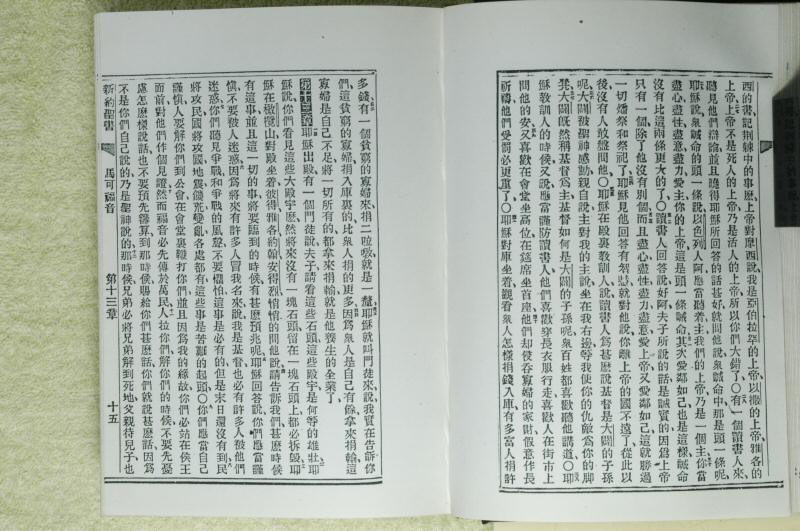 西的書記荆棘中的事麽上帝對摩西說我是亞伯拉罕的上帝以撒的上帝雅各的
上帝上帝不是死人的上帝乃是活人的上帝所以你們大錯了〇有一個讀書人來
聽見他們辯論並且曉得耶穌所回答的話甚好就問他說衆誡命中那是頭一條呢
耶穌說衆誡命的頭一條說以色列人阿應當聽着主我們的上帝乃是一個主你當
盡心盡性盡意盡力愛主你的上帝這是頭一條誡命其次愛鄰如己也是這樣誡命
沒有比這兩條更大的了〇讀書人回答說好阿夫子所說的話是誠實的因爲上帝
只有一個除了他沒有別個而且盡心盡性盡力盡意愛上帝又愛鄰如己這就勝過
一切燔祭和祭祀了耶穌見他回答有智慧就對他說你離上帝的國不遠了從此以
後沒有人敢盤問他〇耶穌在殿裏教訓人說讀書人爲甚麽說基督是大闢的子孫
呢大闢被聖神感動親自說主對我的主說坐在我右邊等我使你的仇敵爲你的脚
凳大闢旣然稱基督爲主基督如何是大闢的子孫呢衆百姓都喜歡聽他講道〇耶
穌教訓人的時候又說應當謹防讀書人他們喜歡穿長衣服行走喜歡人在街市上
問他的安又喜歡在會堂坐高位在筵席坐首座他們却侵呑寡婦的家財假意作長
祈禱他們受罰必更重了〇耶穌對庫坐着觀看衆人怎樣捐錢入庫有多富人捐許
多錢有一個貧窮的寡婦來捐二叱嗷就是一釐耶穌就叫門徒來說我實在告訴你
們這貧窮的寡婦捐入庫裏的比衆人捐的更多因爲衆人是自己有餘拿來捐輸這
寡婦是自己不足將一切所有的都拿來捐輸就是他養生的全業了
第十三章耶穌出殿有一個門徒說夫子請看這些石頭這些殿宇是何等的雄壯耶
穌說你們看見這些大殿宇麽然將來沒有一塊石頭留在一塊石頭上都必拆毀耶
穌在橄欖山對殿坐着彼得雅各約翰安得烈悄悄的問他說請告訴我們甚麽時候
有這事並且這一切的事將要臨到的時候有甚麽預兆呢耶穌回答說你們應當謹
愼不要被人迷惑因爲將來有許多人冒我名來說我是基督也必有許多人被他們
迷惑你們聽見爭戰和爭戰的風聲不要懼怕這事是必有的但是末日還沒有到民
將攻民國將攻國地震饑荒變亂各處都有這些事是苦難的起頭〇你們應當自己
謹愼人要解你們到公會在會堂裏鞭打你們並且因爲我的緣故你們必站在侯王
面前對他們作個見證然而福音必先傳於萬民人拉你們解你們的時候不要先憂
慮怎麽樣說話也不要預先籌算到那時候賜給你們甚麽話你們就說甚麽話因爲
不是你們自己說的乃是聖神說的那時候兄弟必將兄弟解到死地父親待兒子也
新約聖書 馬可福音 第十三章 十五